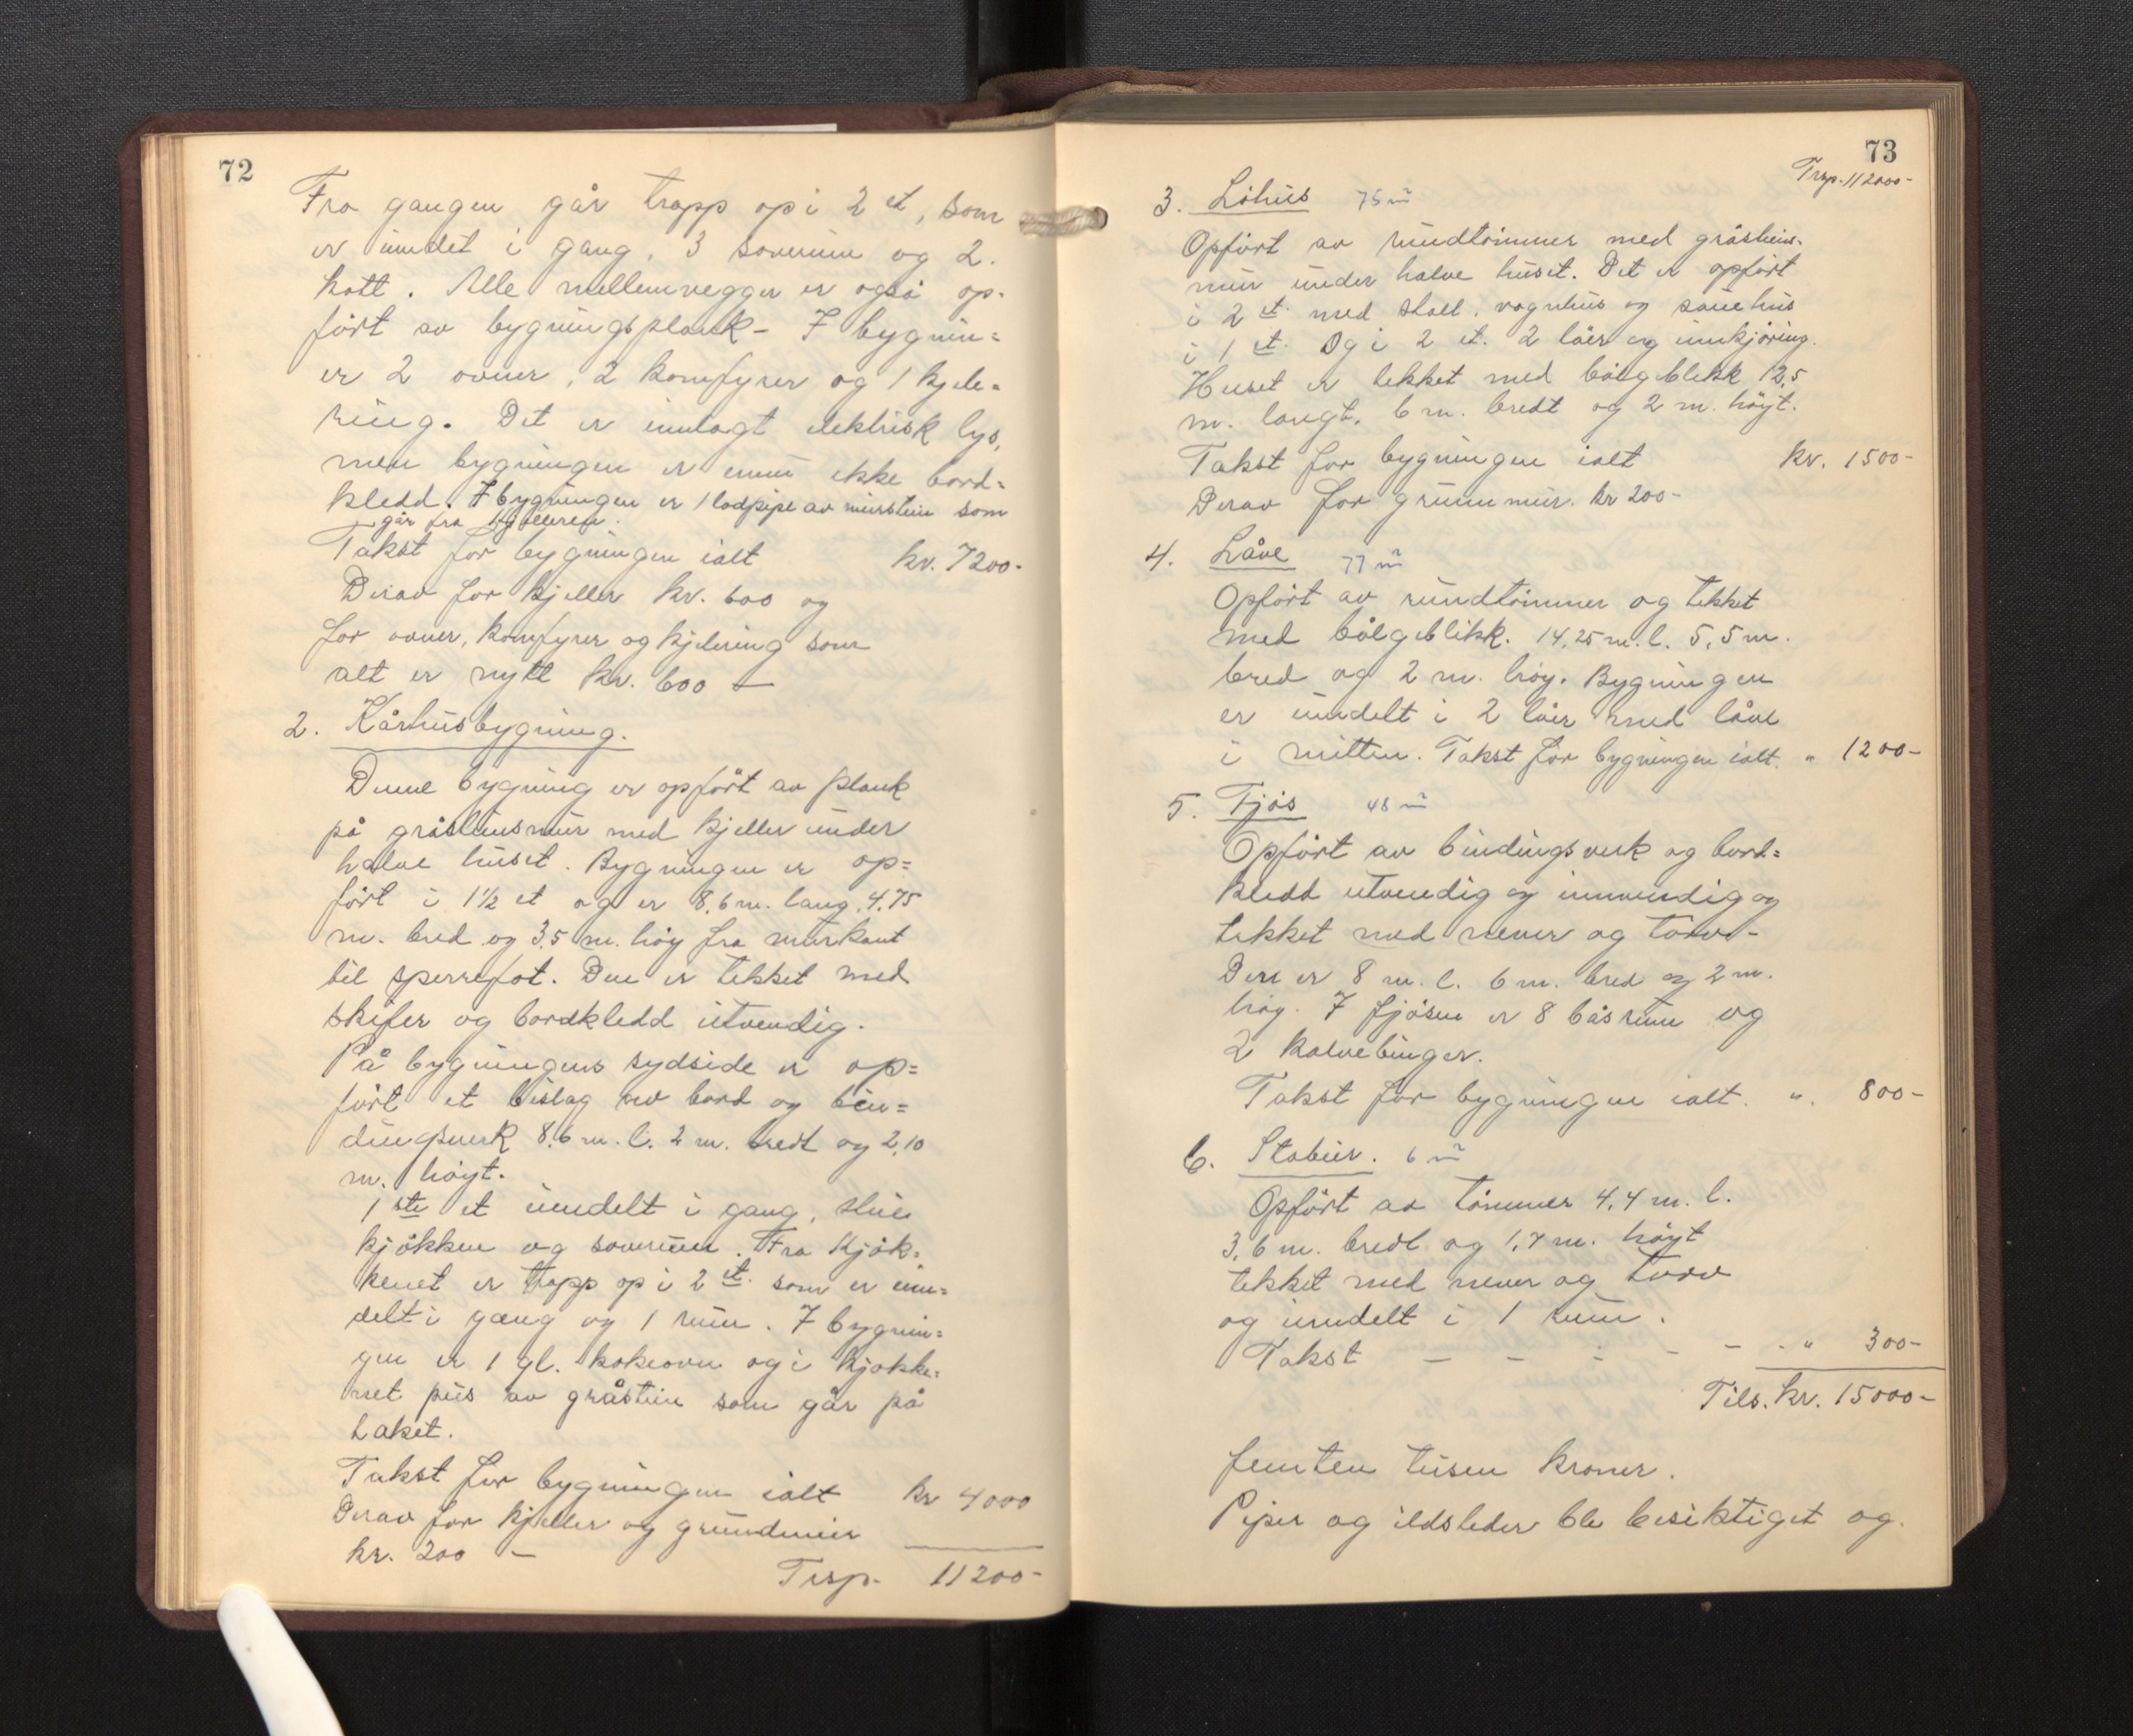 72
Fra gangen går trapp op i 2 et, som
er inndet i gang, 3 soverum og 2
kott. Alle mellemvegger er også op-
ført av bygningsplank- I bygnin=
er 2 ovner, 2 komfyrer og 1 kjele=
ring. Det er innlagt elektrisk lys,
men bygningen er ennu ikke bord=
kledd. I bygningen er 1 lodpipe av murstein som
går fra kjelleren.
Takst for bygningen ialt kr. 7200-
Derav for kjeller kr. 600 og
for ovner, komfyrer og kjelering som
alt er nytt kr. 600 —
2. Kårhusbygning.
Denne bygning er opført av plank
på gråsteinsmur med kjeller under
halve huset. Bygningen er op=
ført i 1½ et og er 8,6 m. lang, 4,75
m. bred og 3,5 m. høy fra murkant
til sperrefot. Den er tekket med
skifer og bordkledd utvendig.
På bygningens sydside er op=
ført et bislag av bord og bin=
dingsverk 8,6 m. l. 2 m. bredt og 2,10
m. høyt.
1ste et inndelt i gang, stue
kjøkken og soverum. Fra kjøk=
kenet er trapp op i 2 et. som er inn=
delt i gang og 1 rum. I bygnin=
gen er 1 gl. kokeovn og i kjøkke=
net peis av gråstein som går på
taket.
Takst for bygningen ialt kr 4000
Derav for kjeller og grundmur
kr. 200 —
Trsp. 11200-
73
Trsp. 11200-
3. Løhus 75 m²
Opført av rundtømmer med gråsteins-
mur under halve huset. Det er opført
i 2 et. med stall, vognhus og sauehus
i 1 et. Og i 2 et. 2 løer og innkjøring.
Huset er tekket med bølgeblikk 12,5
m. langt, 6 m. bredt og 2 m. høyt.
Takst for bygningen ialt kr. 1500-
Derav for grunnmur. kr 200-
4. Låve 77 m²
Opført av rundtømmer og tekket
med bølgeblikk. 14,25 m. l. 5,5 m.
bred og 2 m. høy. Bygningen
er inndelt i 2 løer med låve
i mitten. Takst for bygningen ialt. " 1200-
5. Fjøs 48 m²
Opført av bindingsverk og bord=
kledd utvendig og innvendig og
tekket med never og torv-
Den er 8 m. l. 6 m. bred og 2 m.
høy. I fjøsen er 8 båsrum og
2 kalvebinger.
Takst for bygningen ialt. ". 800-
6. Stabur. 6 m²
Opført av tømmer 4,4 m. l.
3,6 m. bredt og 1,7 m. høyt
tekket med never og torv
og inndelt i 1 rum.
Takst — — - - - . " 300-
Tils. kr. 15000-
femten tusen kroner.
Piper og ildsteder ble besiktiget og